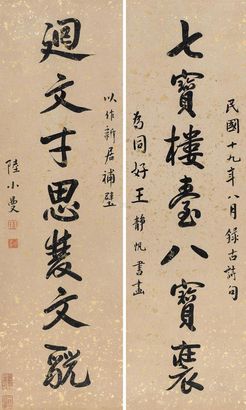 民國十九年八月錄古詩句
七寶樓臺八寶
為同好王靜帆書畫
以作新居補壁
迴文才思雙文貌
陸小曼